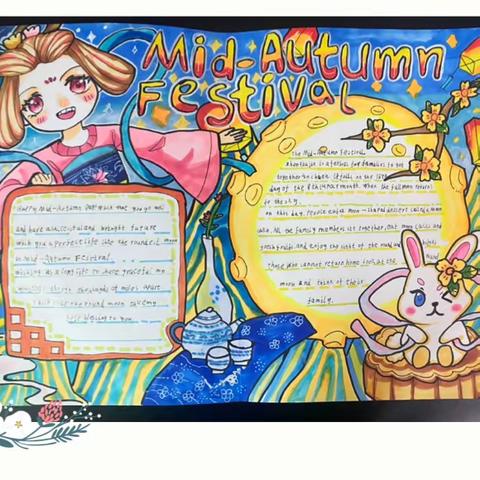 Mid-Autumn
Festival
Happy Mid-Autumn Day! Wish that you go well
and have a successful and bright future
wish you a perfect life like the roundest moon
in Mid-Autumn Festival.
Wishing us a long life to share the graceful moonlight, though hundreds of miles apart
I wish the round moon take my
best blessing to you.
The Mid-Autumn Festival
is a festival for families to get
together. It falls on the 15th
day of the 8th lunar month. When the full moon returns
to the sky
on this day, people enjoy moon-shaped dessert called moon
cake. All the family members get together, eat moon cakes and
fresh fruits, and enjoy the sight of the round moon
Those who cannot return home look at the
moon and think of their
family.